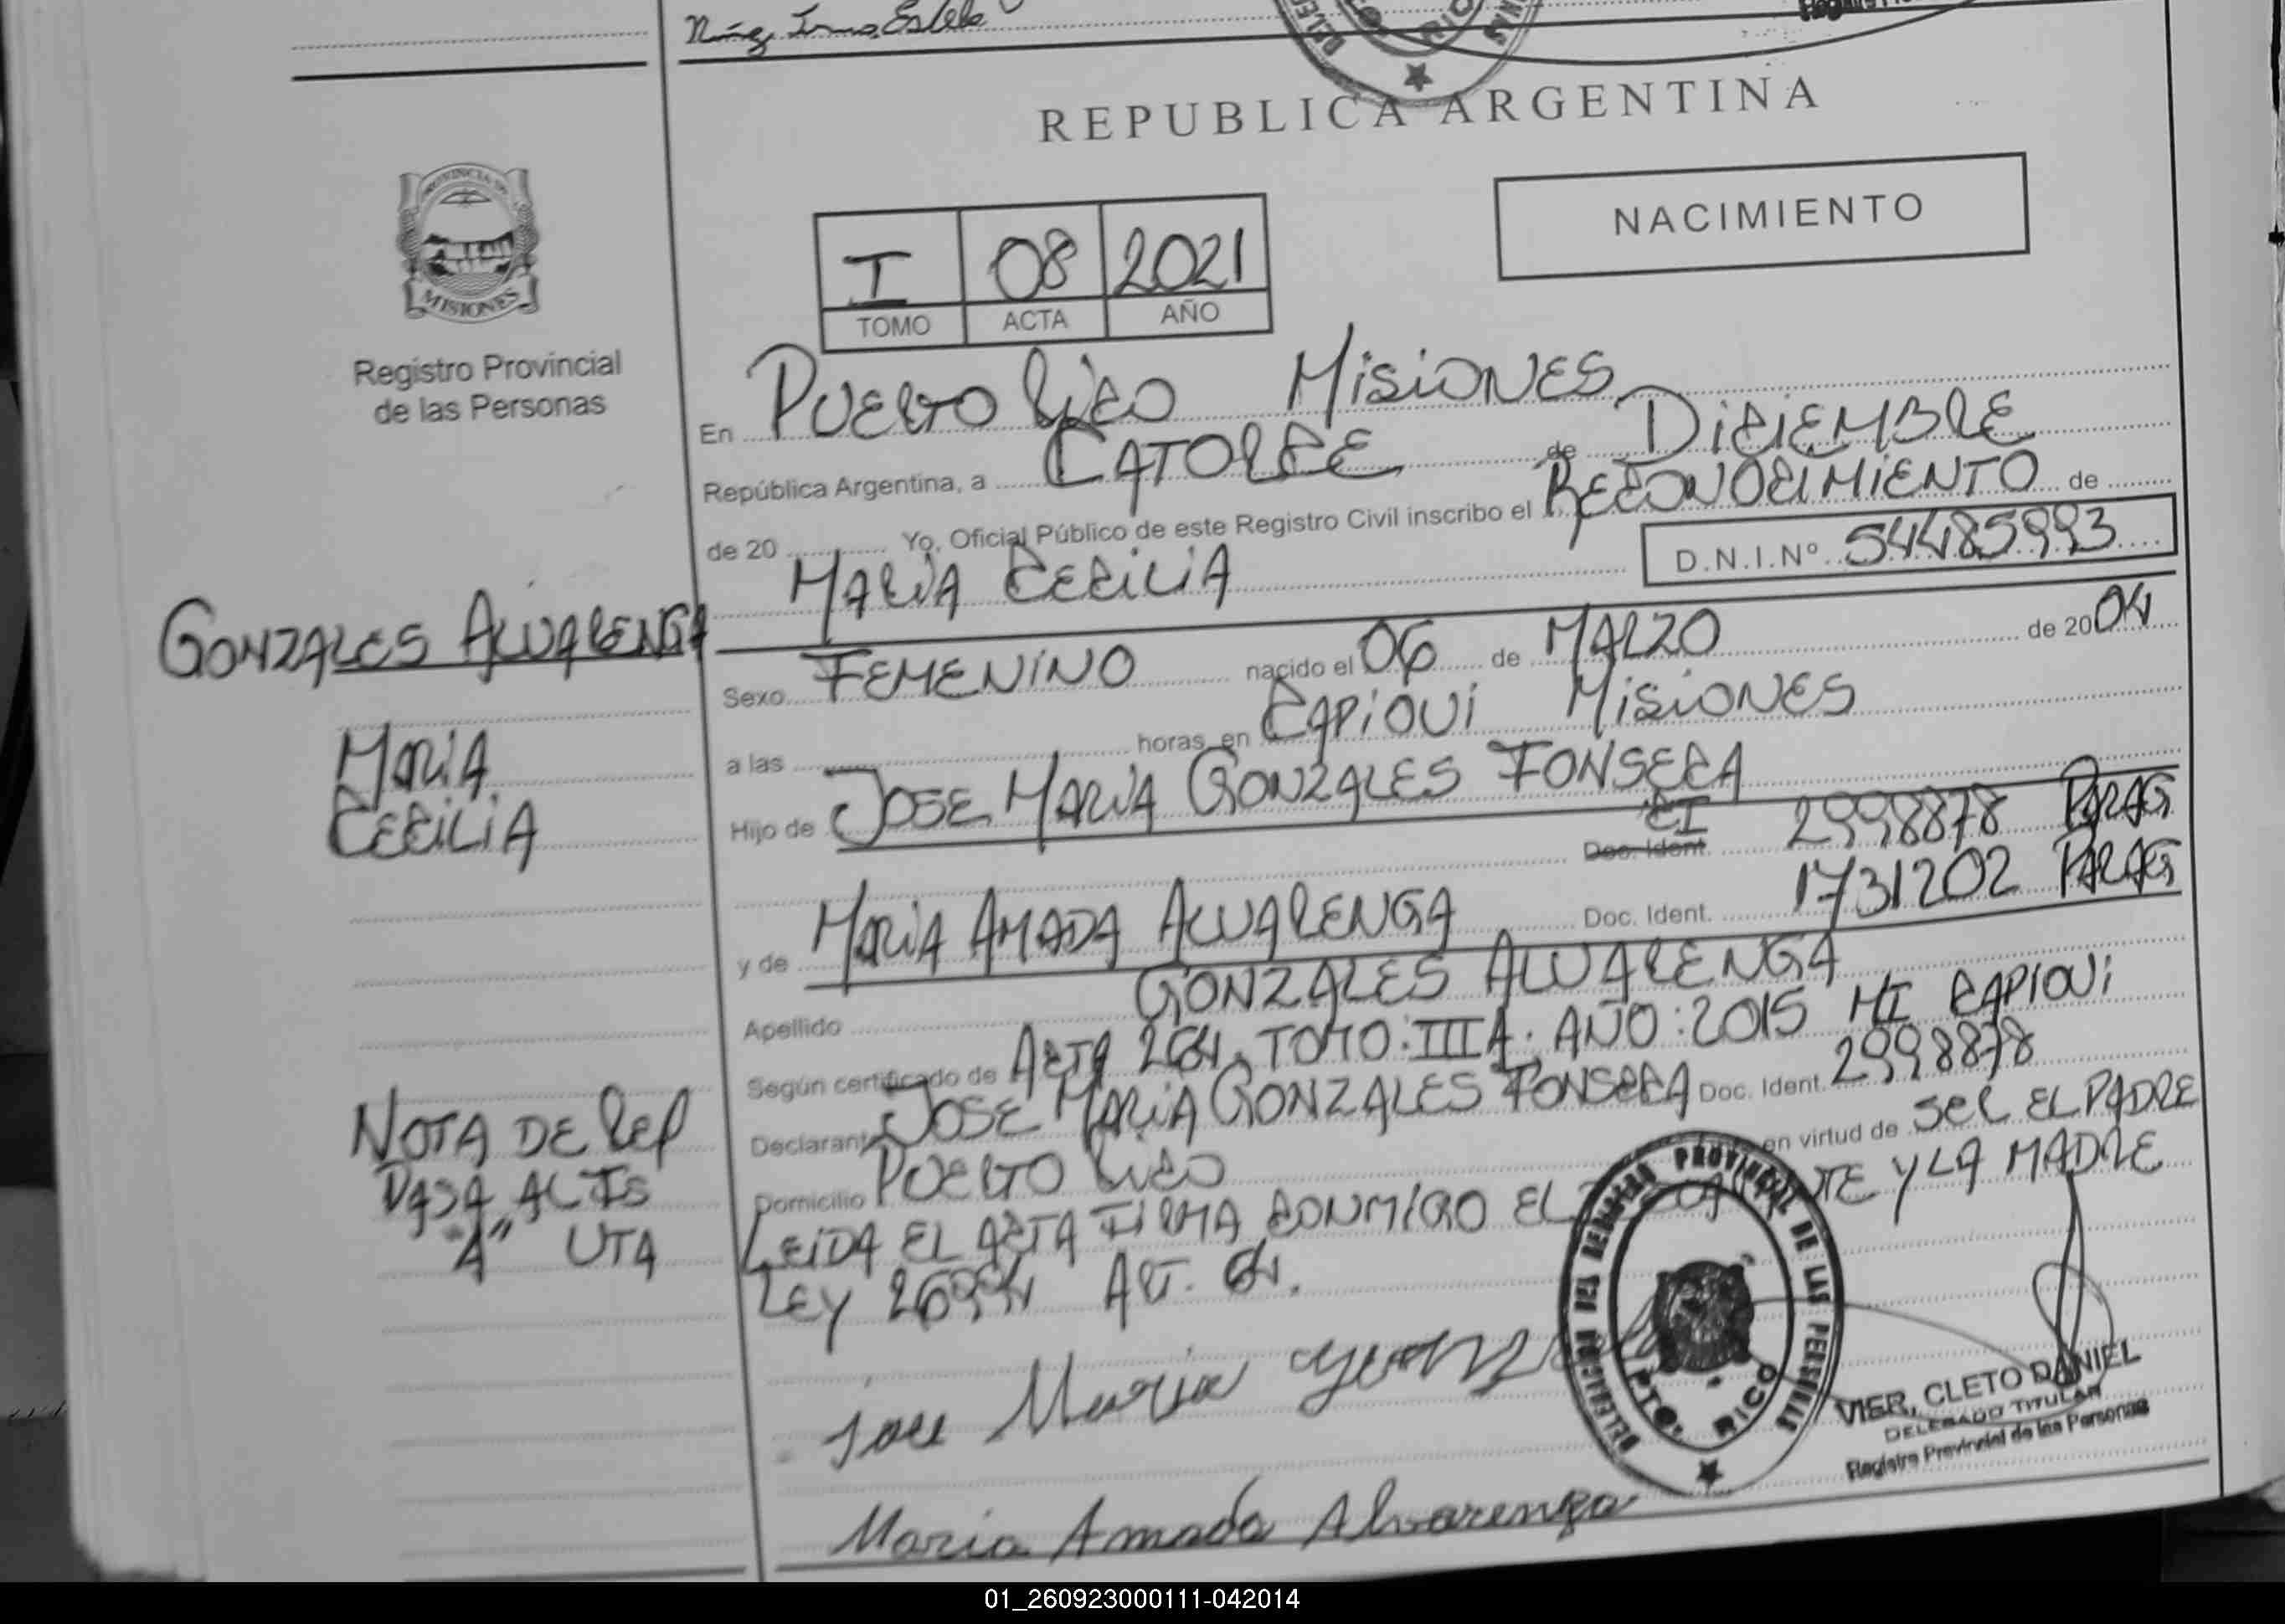 REPUBLICA ARGENTINA
NACIMIENTO
PROVINCIA DE
MISIONES
Registro Provincial
de las Personas
I 08 2021
TOMO ACTA AÑO
En PUERTO RICO MISIONES
República Argentina, a CATORCE de DICIEMBRE
de 20 Yo, Oficial Público de este Registro Civil inscribo el RECONOCIMIENTO de
MARIA CECILIA D.N.I.Nº 54485993
GONZALES ALVARENGA
MARIA
CECILIA
Sexo FEMENINO nacido el 06 de MARZO de 2004
a las horas, en CAPIOVI MISIONES
Hijo de JOSE MARIA GONZALES FONSECA
CI
Doc. Ident. 2998878 PARAG
y de MARIA AMADA ALVARENGA Doc. Ident. 1731202 PARAG
Apellido GONZALES ALVARENGA
Según certificado de ACTA 264, TOMO: III A. AÑO: 2015 MI CAPIOVI
Declarante JOSE MARIA GONZALES FONSECA Doc. Ident. 2998878
Domicilio PUERTO RICO en virtud de SER EL PADRE
LEIDA EL ACTA FIRMA CONMIGO EL Y LA MADRE
LEY 26994 ART. 64.
NOTA DE REF
PASA ACTS
"A" UTA
Jose Maria
Maria Amada Alvarenga
DELEGACION DEL REGISTRO PROVINCIAL DE LAS PERSONAS
PTO. RICO
VIER, CLETO DANIEL
DELEGADO TITULAR
Registro Provincial de las Personas
01_260923000111-042014